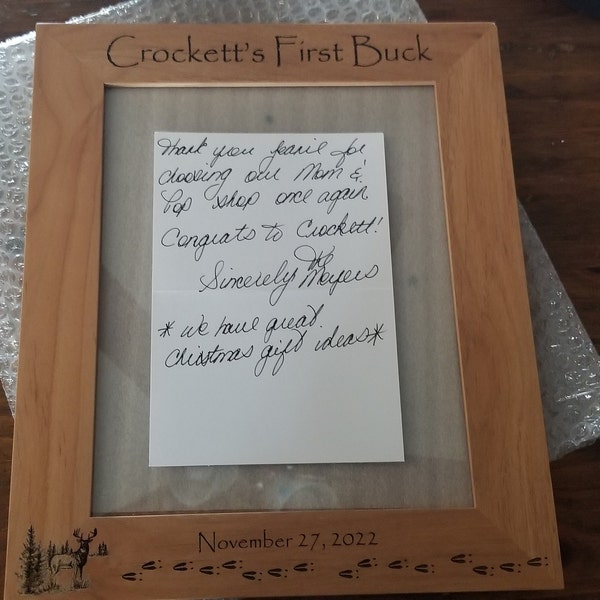 Crockett's First Buck
Thank you Jeanie for
choosing our Mom &
Pop shop once again
Congrats to Crockett!
Sincerely, The
Meyers
* We have great
Christmas gift ideas *
November 27, 2022